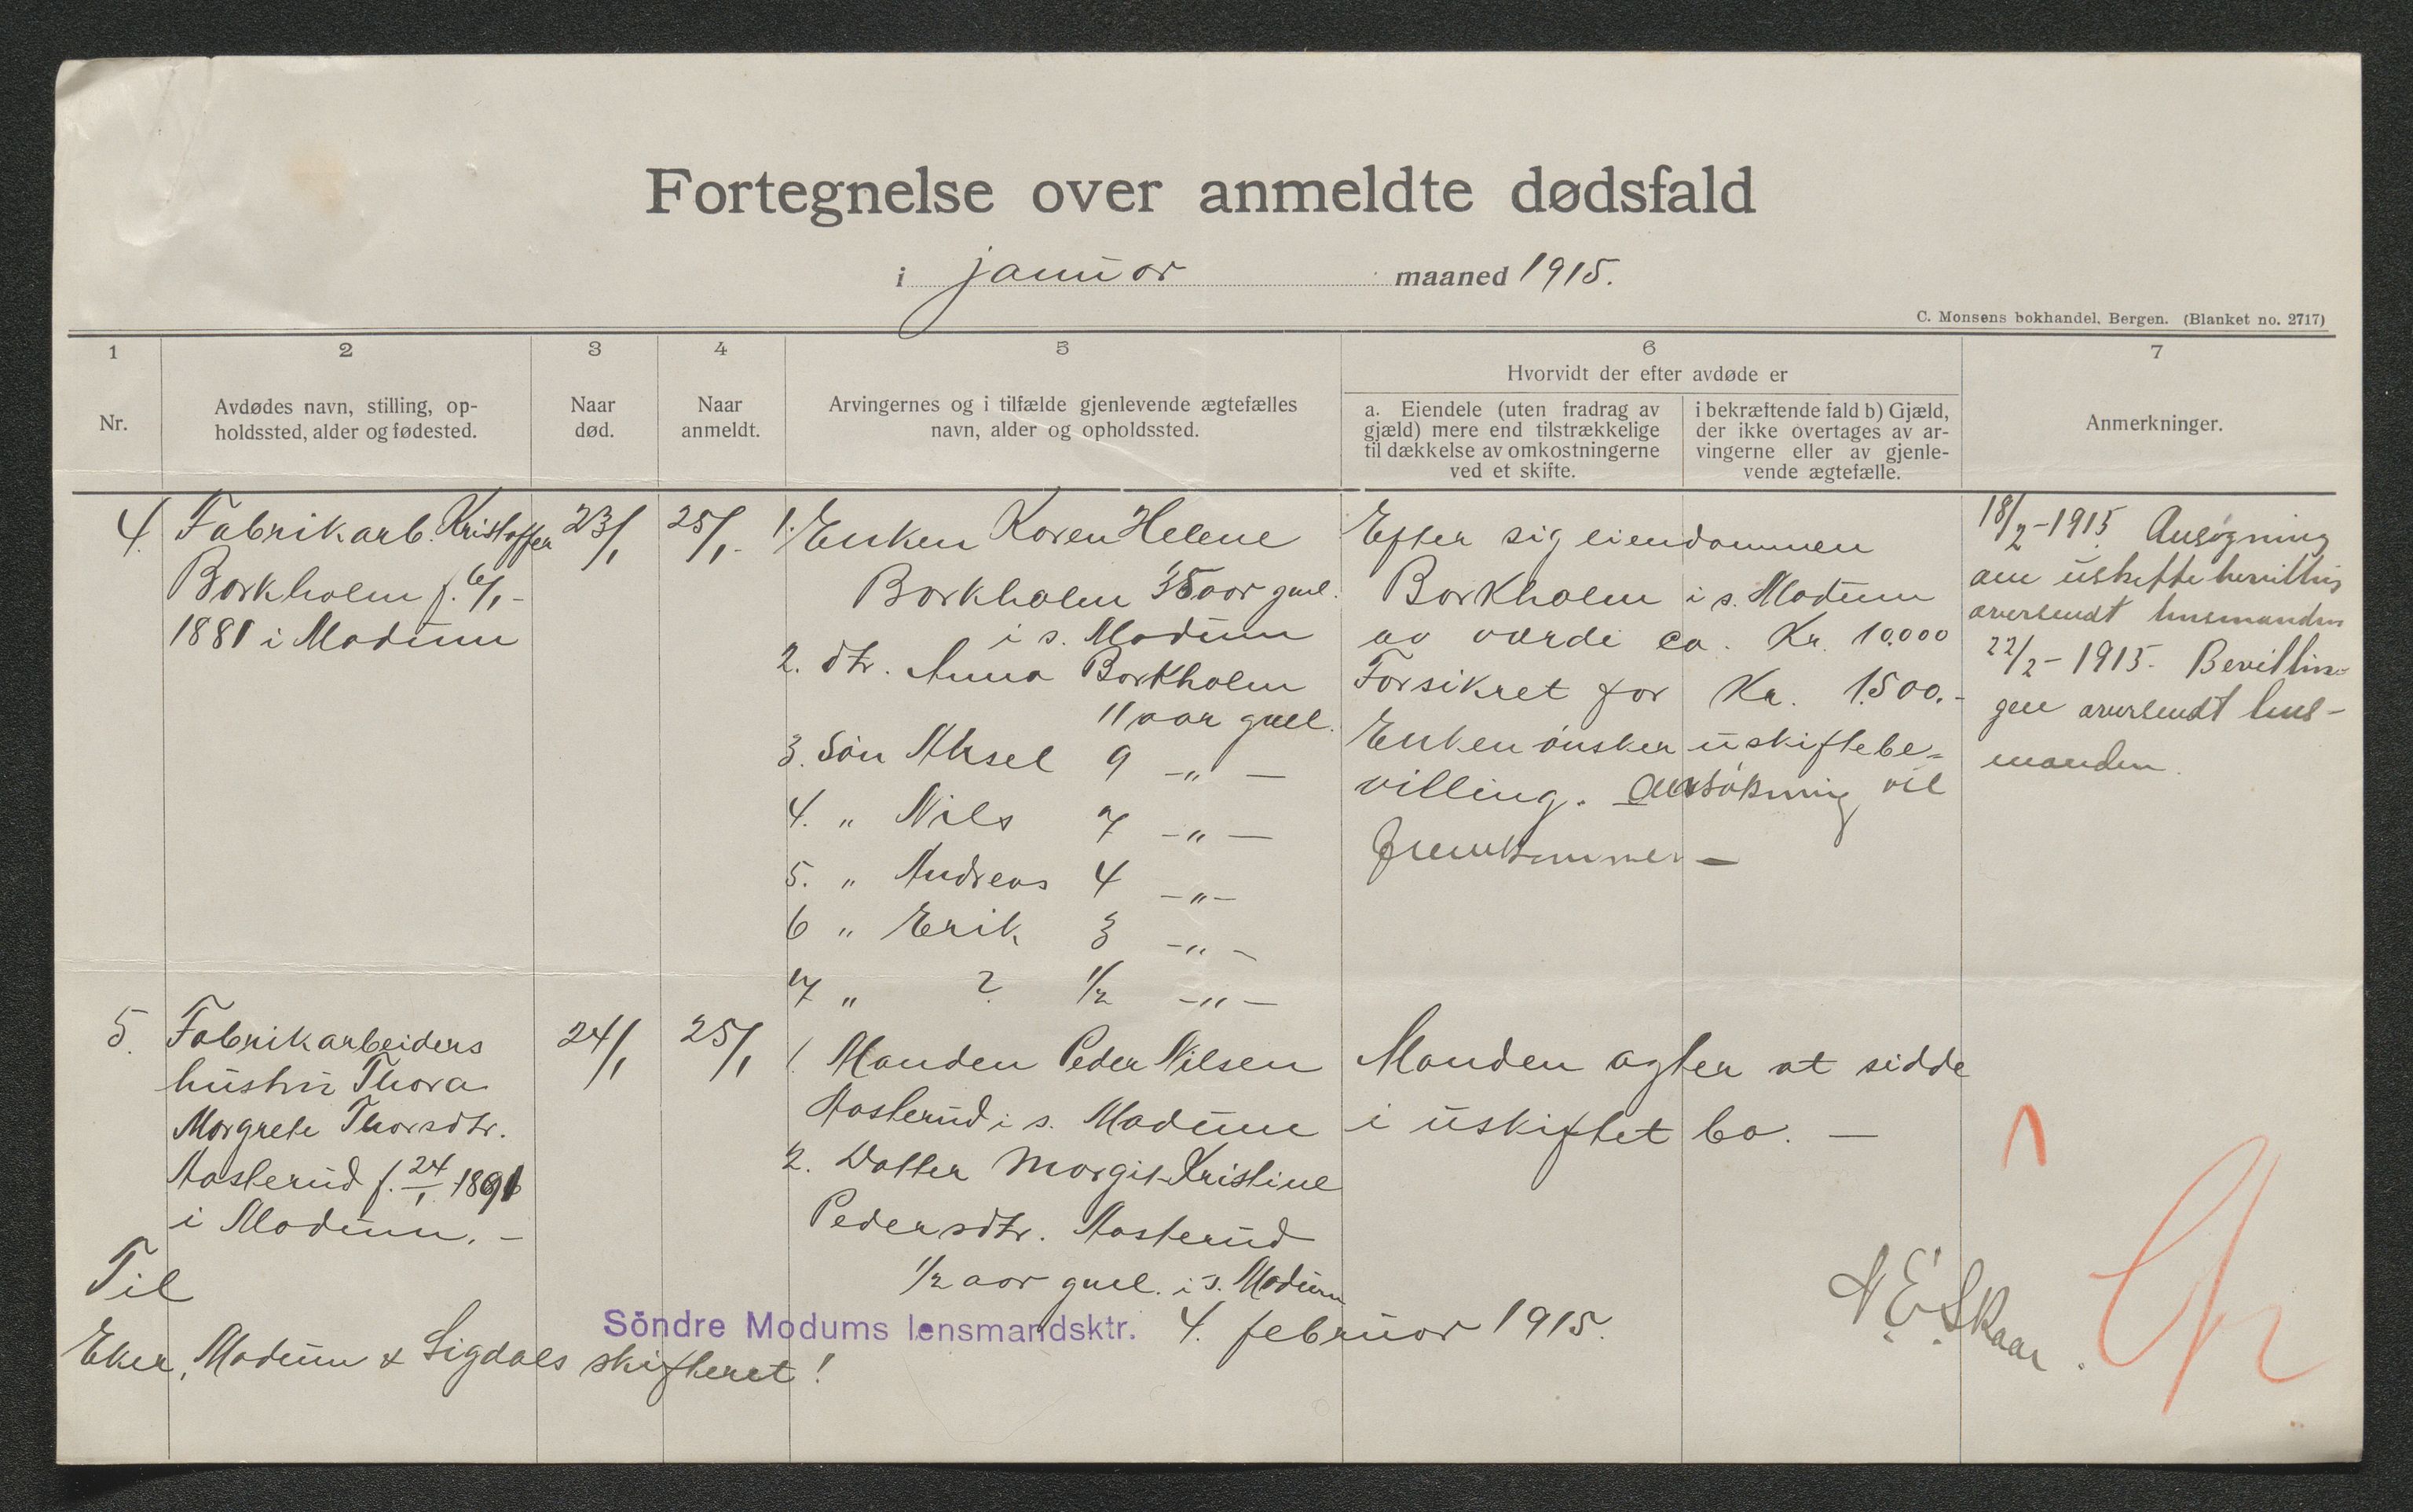 Fortegnelse over anmeldte dødsfald
i januar maaned 1915.
C. Monsens bokhandel, Bergen. (Blanket no. 2717)
1
Nr.
2
Avdødes navn, stilling, op-
holdssted, alder og fødested.
3
Naar
død.
4
Naar
anmeldt.
5
Arvingernes og i tilfælde gjenlevende ægtefælles
navn, alder og opholdssted.
6
Hvorvidt der efter avdøde er
a. Eiendele (uten fradrag av
gjæld) mere end tilstrækkelige
til dækkelse av omkostningerne
ved et skifte.
i bekræftende fald b) Gjæld,
der ikke overtages av ar-
vingerne eller av gjenle-
vende ægtefælle.
7
Anmerkninger.
4. Fabrikarb. Kristoffer
Borkholm f. 6/1-
1881 i Modum
23/1
25/1.-
1. Enken Karen Helene
Borkholm 35 aar gml.
i s. Modum
2. dtr. Anna Borkholm
11 aar gml.
3. Søn Aksel 9 -"-
4. " Nils 7 -"-
5. " Andreas 4 -"-
6 " Erik 3 -"-
7 " ? 1/2 -"-
Efter sig eiendommen
Borkholm i s. Modum
av værdi ca. Kr. 10.000
Forsikret for Kr. 1500.-
Enken ønsker uskiftebe=
villing. Ansøkning vil
fremkommer -
18/2-1915 Ansøgning
om uskiftebevilling
oversendt lensmanden
22/2-1915. Bevillin-
gen oversendt lens-
manden.
5. Fabrikarbeiders
hustru Thora
Margrete Thorsdtr.
Aasterud f. 24/1 1891
i Modum. -
24/1
25/1
1 Manden Peder Nilsen
Aasterud i s. Modum
2. Datter Margit Kristine
Pedersdtr. Aasterud
1/2 aar gml. i s. Modum
Manden agter at sidde
i uskiftet bo. -
Til
Eker, Modum & Sigdals skifteret!
Söndre Modums lensmandsktr. 4. februar 1915.
N E Skaar.